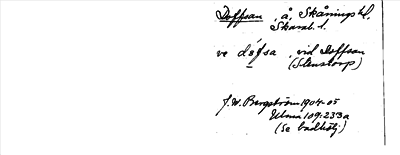 Doffsan, å, Skånings hd,
Skarab. l.
ve dófsa, vid Doffsan
(Stenstorp)
J. W. Bergström 1904-05
Ulma 109:233a
(se badhölj)